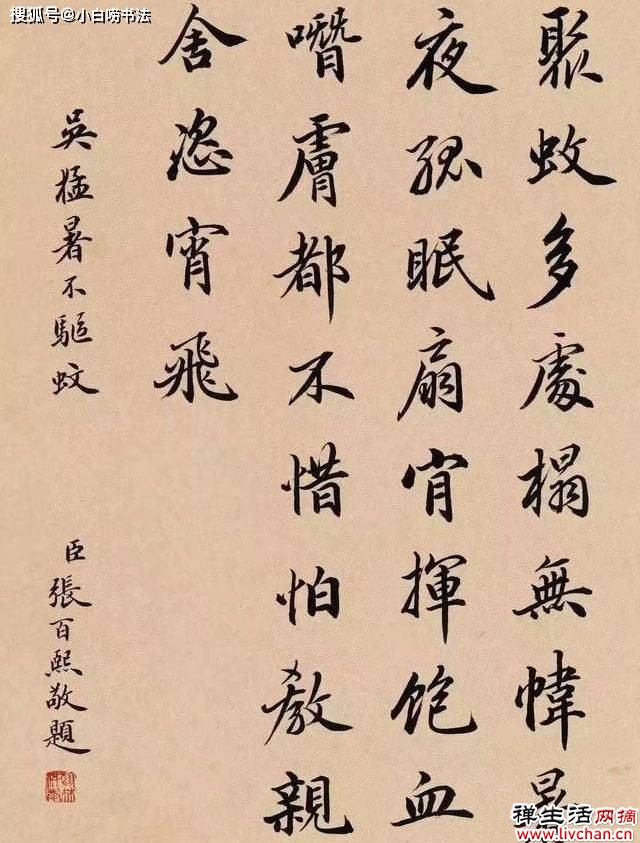 搜狐号@小白唠书法
聚蚊多處榻無幃暑
夜孤眠扇肯揮飽血
噆膚都不惜怕教親
舍恣宵飛
吳猛暑不驅蚊
臣張百熙敬題
禅生活网摘
www.livchan.cn